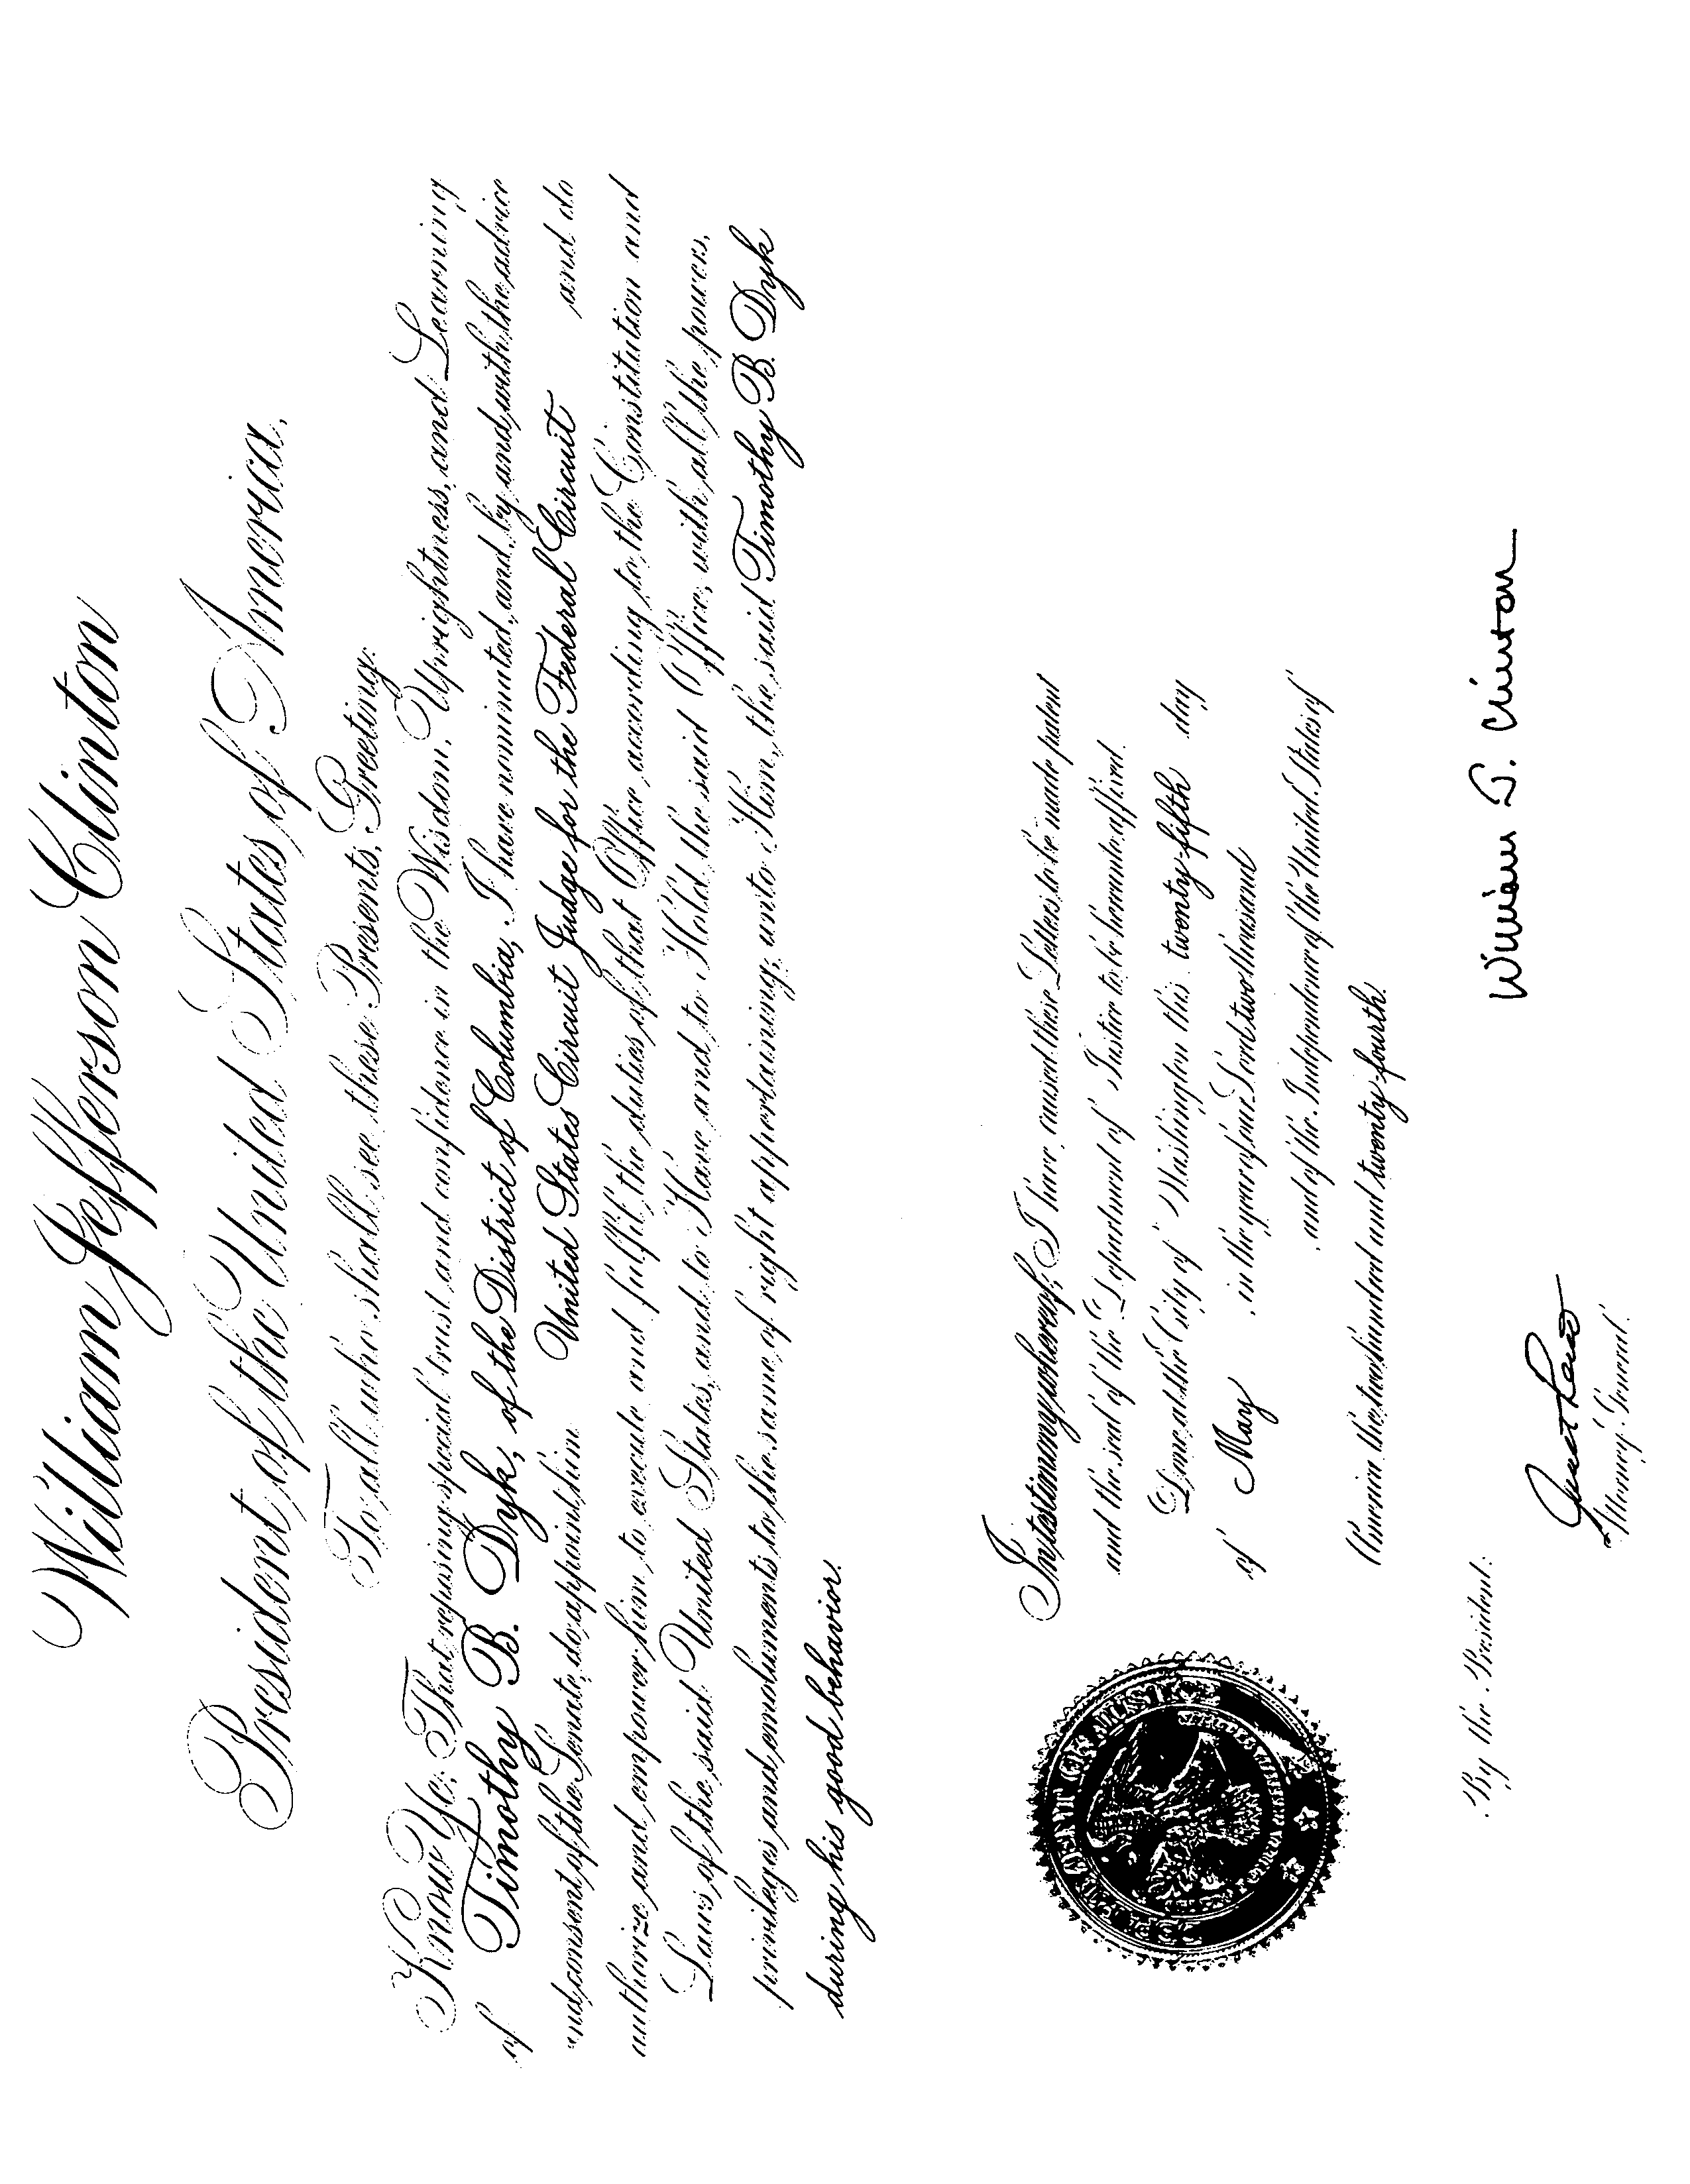 William Jefferson Clinton
President of the United States of America,
To all who shall see these Presents, Greeting:
Know Ye; That reposing special trust and confidence in the Wisdom, Uprightness, and Learning
of Timothy B. Dyk, of the District of Columbia, I have nominated, and, by and with the advice
and consent of the Senate, do appoint him United States Circuit Judge for the Federal Circuit and do
authorize and empower him to execute and fulfil the duties of that Office according to the Constitution and
Laws of the said United States, and to Have and to Hold the said Office, with all the powers,
privileges and emoluments to the same of right appertaining, unto Him, the said Timothy B. Dyk
during his good behavior.
In testimony whereof, I have caused these Letters to be made patent
and the seal of the Department of Justice to be hereunto affixed.
Done at the City of Washington this twenty-fifth day
of May in the year of our Lord two thousand
and of the Independence of the United States of
America the two hundred and twenty-fourth.
DEPARTMENT OF JUSTICE
William J. Clinton
By the President:
Janet Reno
Attorney General.